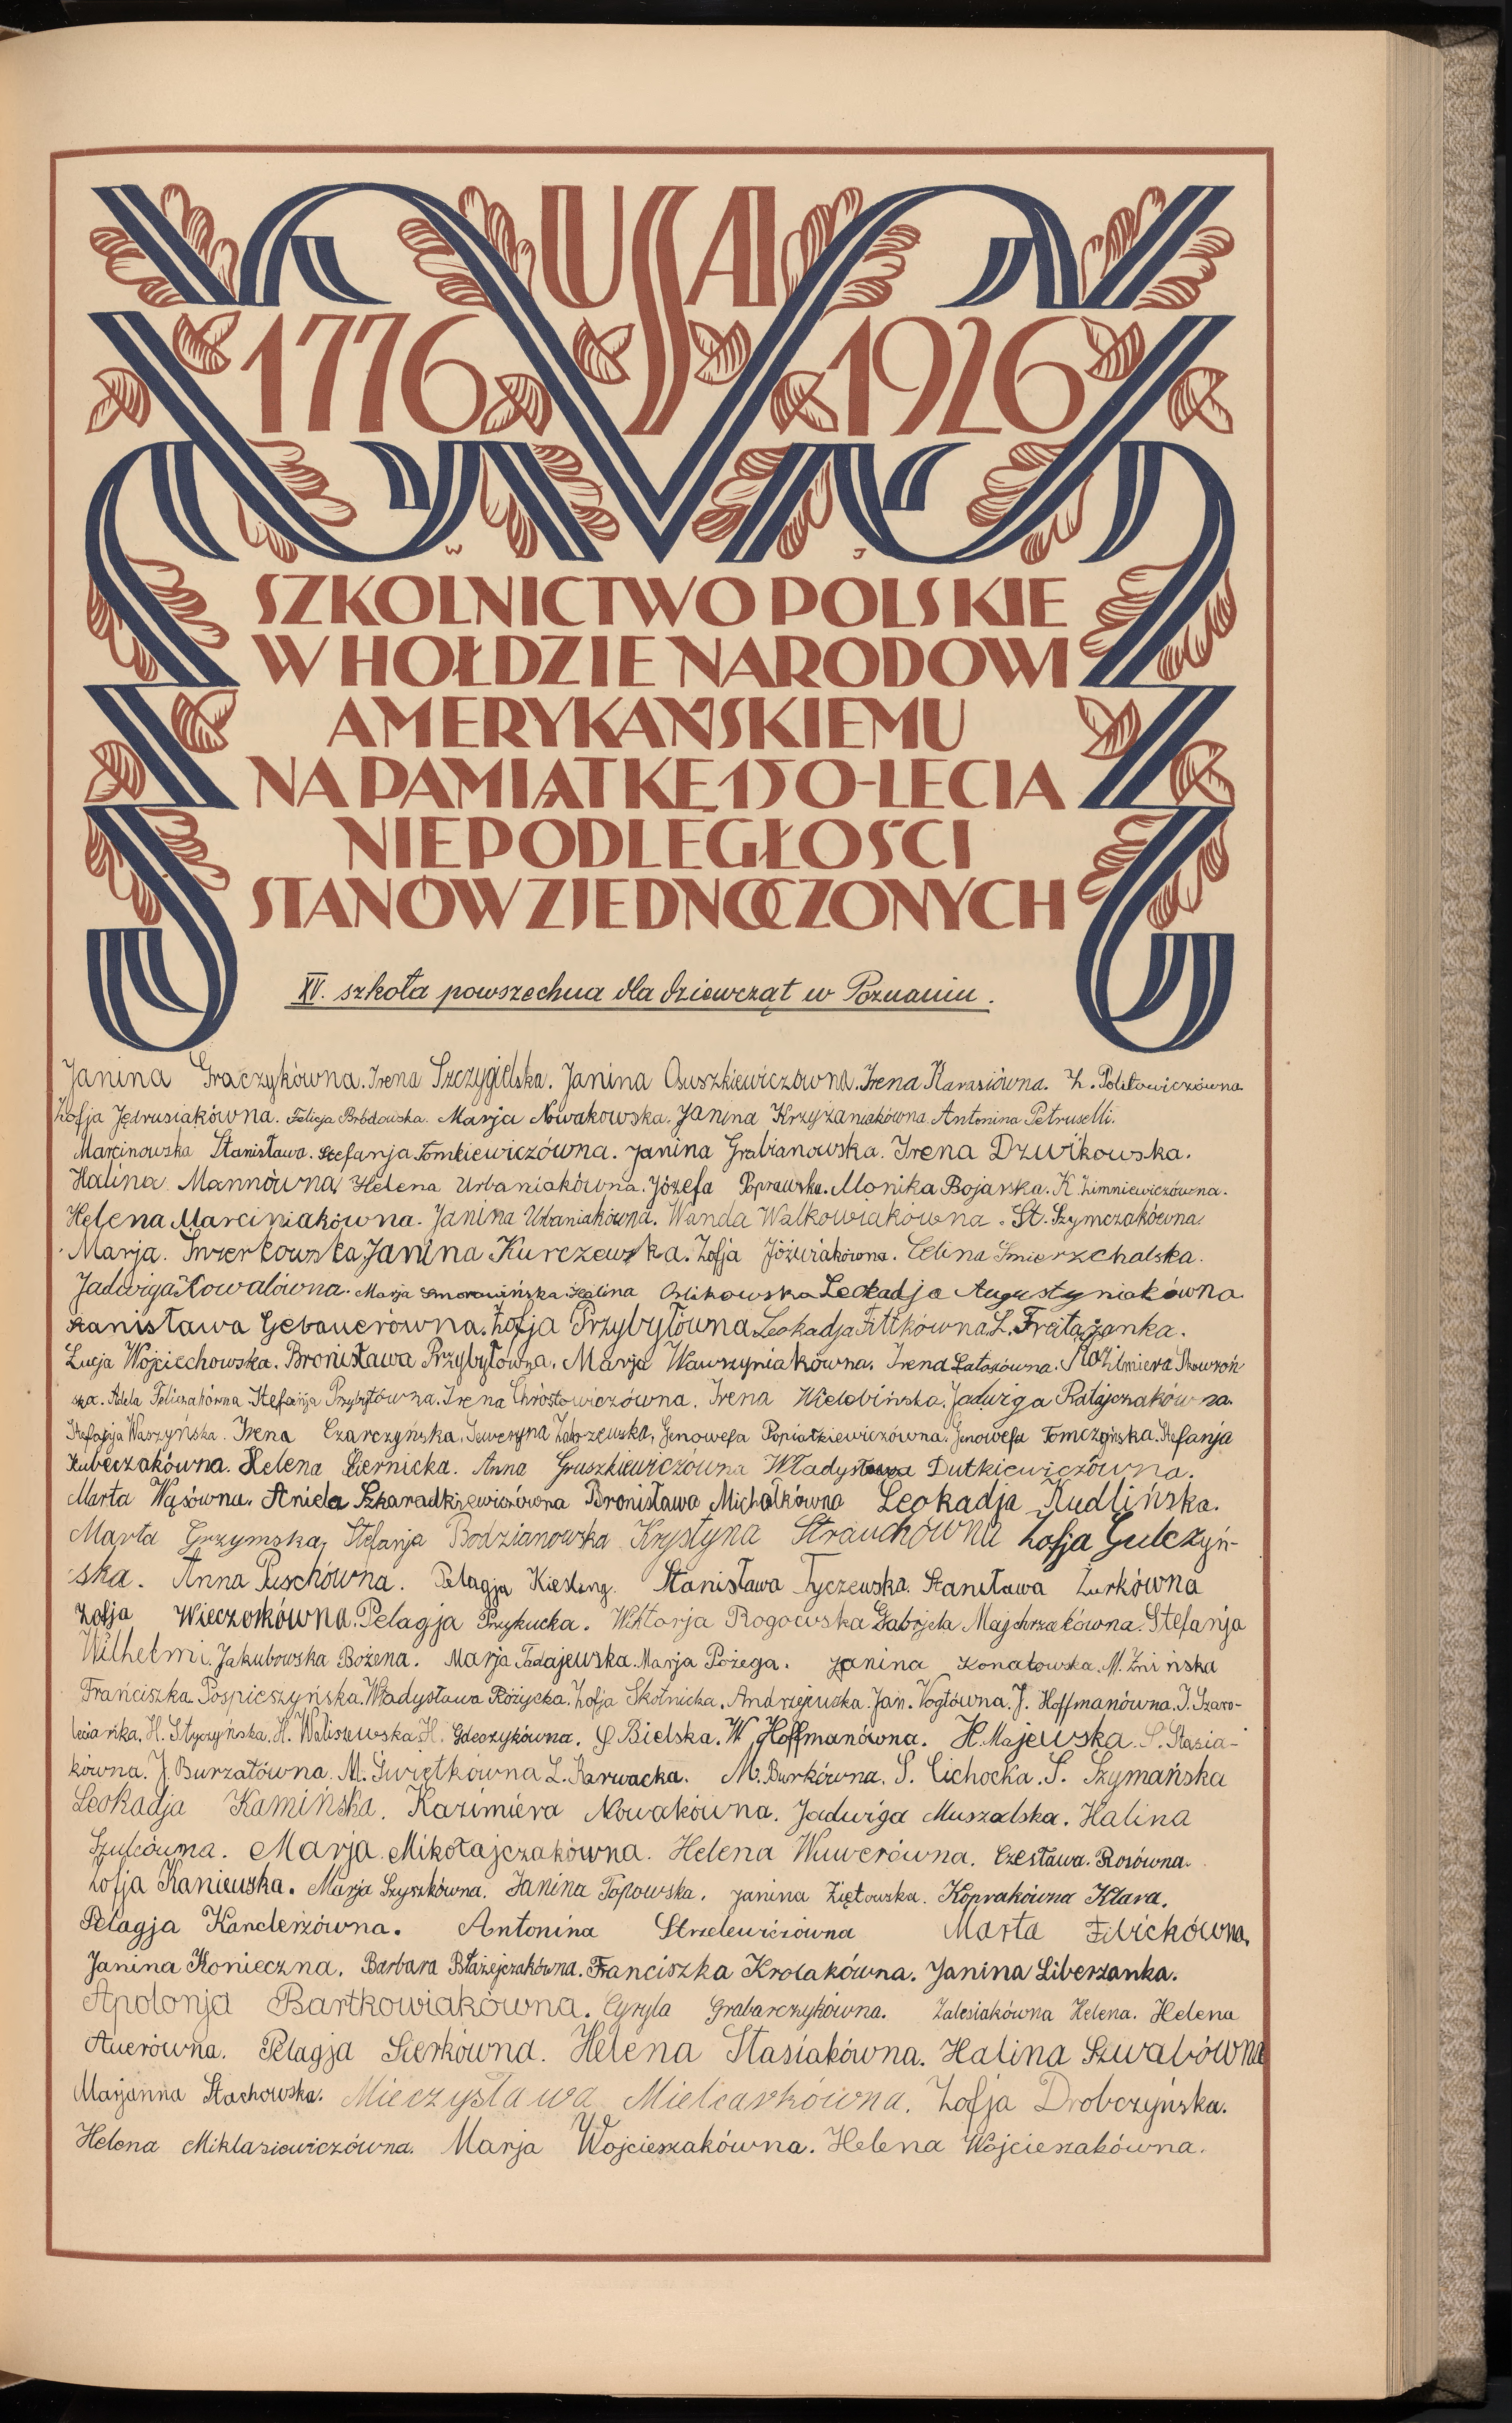 USA
1776 1926
W J
SZKOLNICTWO POLSKIE
W HOŁDZIE NARODOWI
AMERYKAŃSKIEMU
NA PAMIĄTKĘ 150-LECIA
NIEPODLEGŁOŚCI
STANÓW ZJEDNOCZONYCH
XV. szkoła powszechna dla dziewcząt w Poznaniu.
Janina Graczykówna. Irena Szczygielska. Janina Osuszkiewiczówna. Irena Karasiówna. Z. Politowiczówna.
Zofja Jędrusiakówna. Felicja Brbdowska. Marja Nowakowska. Janina Krzyżaniakówna. Antonina Petruselli.
Marcinowska Stanisława. Stefanja Tomkiewiczówna. Janina Grabianowska. Irena Dzwikowska.
Halina Mannówna, Helena Urbaniakówna. Józefa Poprawska. Monika Bojarska. K. Zimniewiczówna.
Helena Marciniakówna. Janina Urbaniakówna. Wanda Walkowiakówna. St. Szymczakówna.
Marja. Świerkowska Janina Kurczewska. Zofja Jóźwiakówna. Celina Śmierzchalska.
Jadwiga Kowalówna. Marja Smorawińska Halina Orlikowska Leokadja Augustyniakówna.
Stanisława Gebauerówna. Zofja Przybyłówna Leokadja Fittkówna. L. Freitażanka.
Łucja Wojciechowska. Bronisława Przybyłówna. Marja Wawrzyniakówna. Irena Latosówna. Kazimiera Skowroń
ska. Adela Feliczakówna. Stefanja Przybyłówna. Irena Chrostowiczówna. Irena Wielebińska. Jadwiga Ratajczakówna.
Stefanja Waszyńska. Irena Czarczyńska. Seweryna Zakrzewska, Genowefa Popiatkiewiczówna. Genowefa Tomczyńska. Stefanja
Kubeczakówna. Helena Biernicka. Anna Gruszkiewiczówna Władysława Dutkiewiczówna.
Marta Wąsówna. Aniela Szkaradkiewiczówna Bronisława Michałkówna Leokadja Kudlińska.
Marta Grzymska, Stefanja Bodzianowska Krystyna Strauchówna Zofja Gulczyń-
ska. Anna Puschówna. Pelagja Kiesling. Stanisława Tyczewska. Stanisława Żurkówna
Zofja Wieczorkówna. Pelagja Przykucka. Wiktorja Rogowska Gabrjela Majchrzakówna. Stefanja
Wilhelmi. Jakubowska Bożena. Marja Tadajewska. Marja Pożega. Janina Konatowska. M. Żnińska
Franciszka Pospieszyńska. Władysława Różycka. Zofja Skotnicka. Andrzejewska Jan. Vogtówna. J. Hoffmanówna. I. Szaro-
leciańka. H. Styczyńska. H. Waliszewska. H. Gdeczykówna. G Bielska. W. Hoffmanówna. H. Majewska. S. Stasia-
kówna. J. Burzatówna. M. Świętkówna L. Karwacka. M. Burkówna. S. Cichocka. S. Szymańska
Leokadja Kamińska. Kazimiera Nowakówna. Jadwiga Muszalska. Halina
Szulcówna. Marja Mikołajczakówna. Helena Wuwerówna. Czesława. Rosówna.
Zofja Kaniewska. Marja Szyszkówna. Janina Topowska. Janina Ziętowska. Koprakówna Klara.
Pelagja Kanclerzówna. Antonina Strzelewiczówna Marta Filickówna,
Janina Konieczna. Barbara Błażejczakówna. Franciszka Krolakówna. Janina Liberzanka.
Apolonja Bartkowiakówna. Cyryla Grabarczykówna. Zalesiakówna Helena. Helena
Auerówna. Pelagja Sierkówna. Helena Stasiakówna. Halina Szwabówna
Marjanna Stachowska. Mieczysława Mielcarkówna. Zofja Drobczyńska.
Helena Miklasiewiczówna. Marja Wojcieszakówna. Helena Wojcieszakówna.